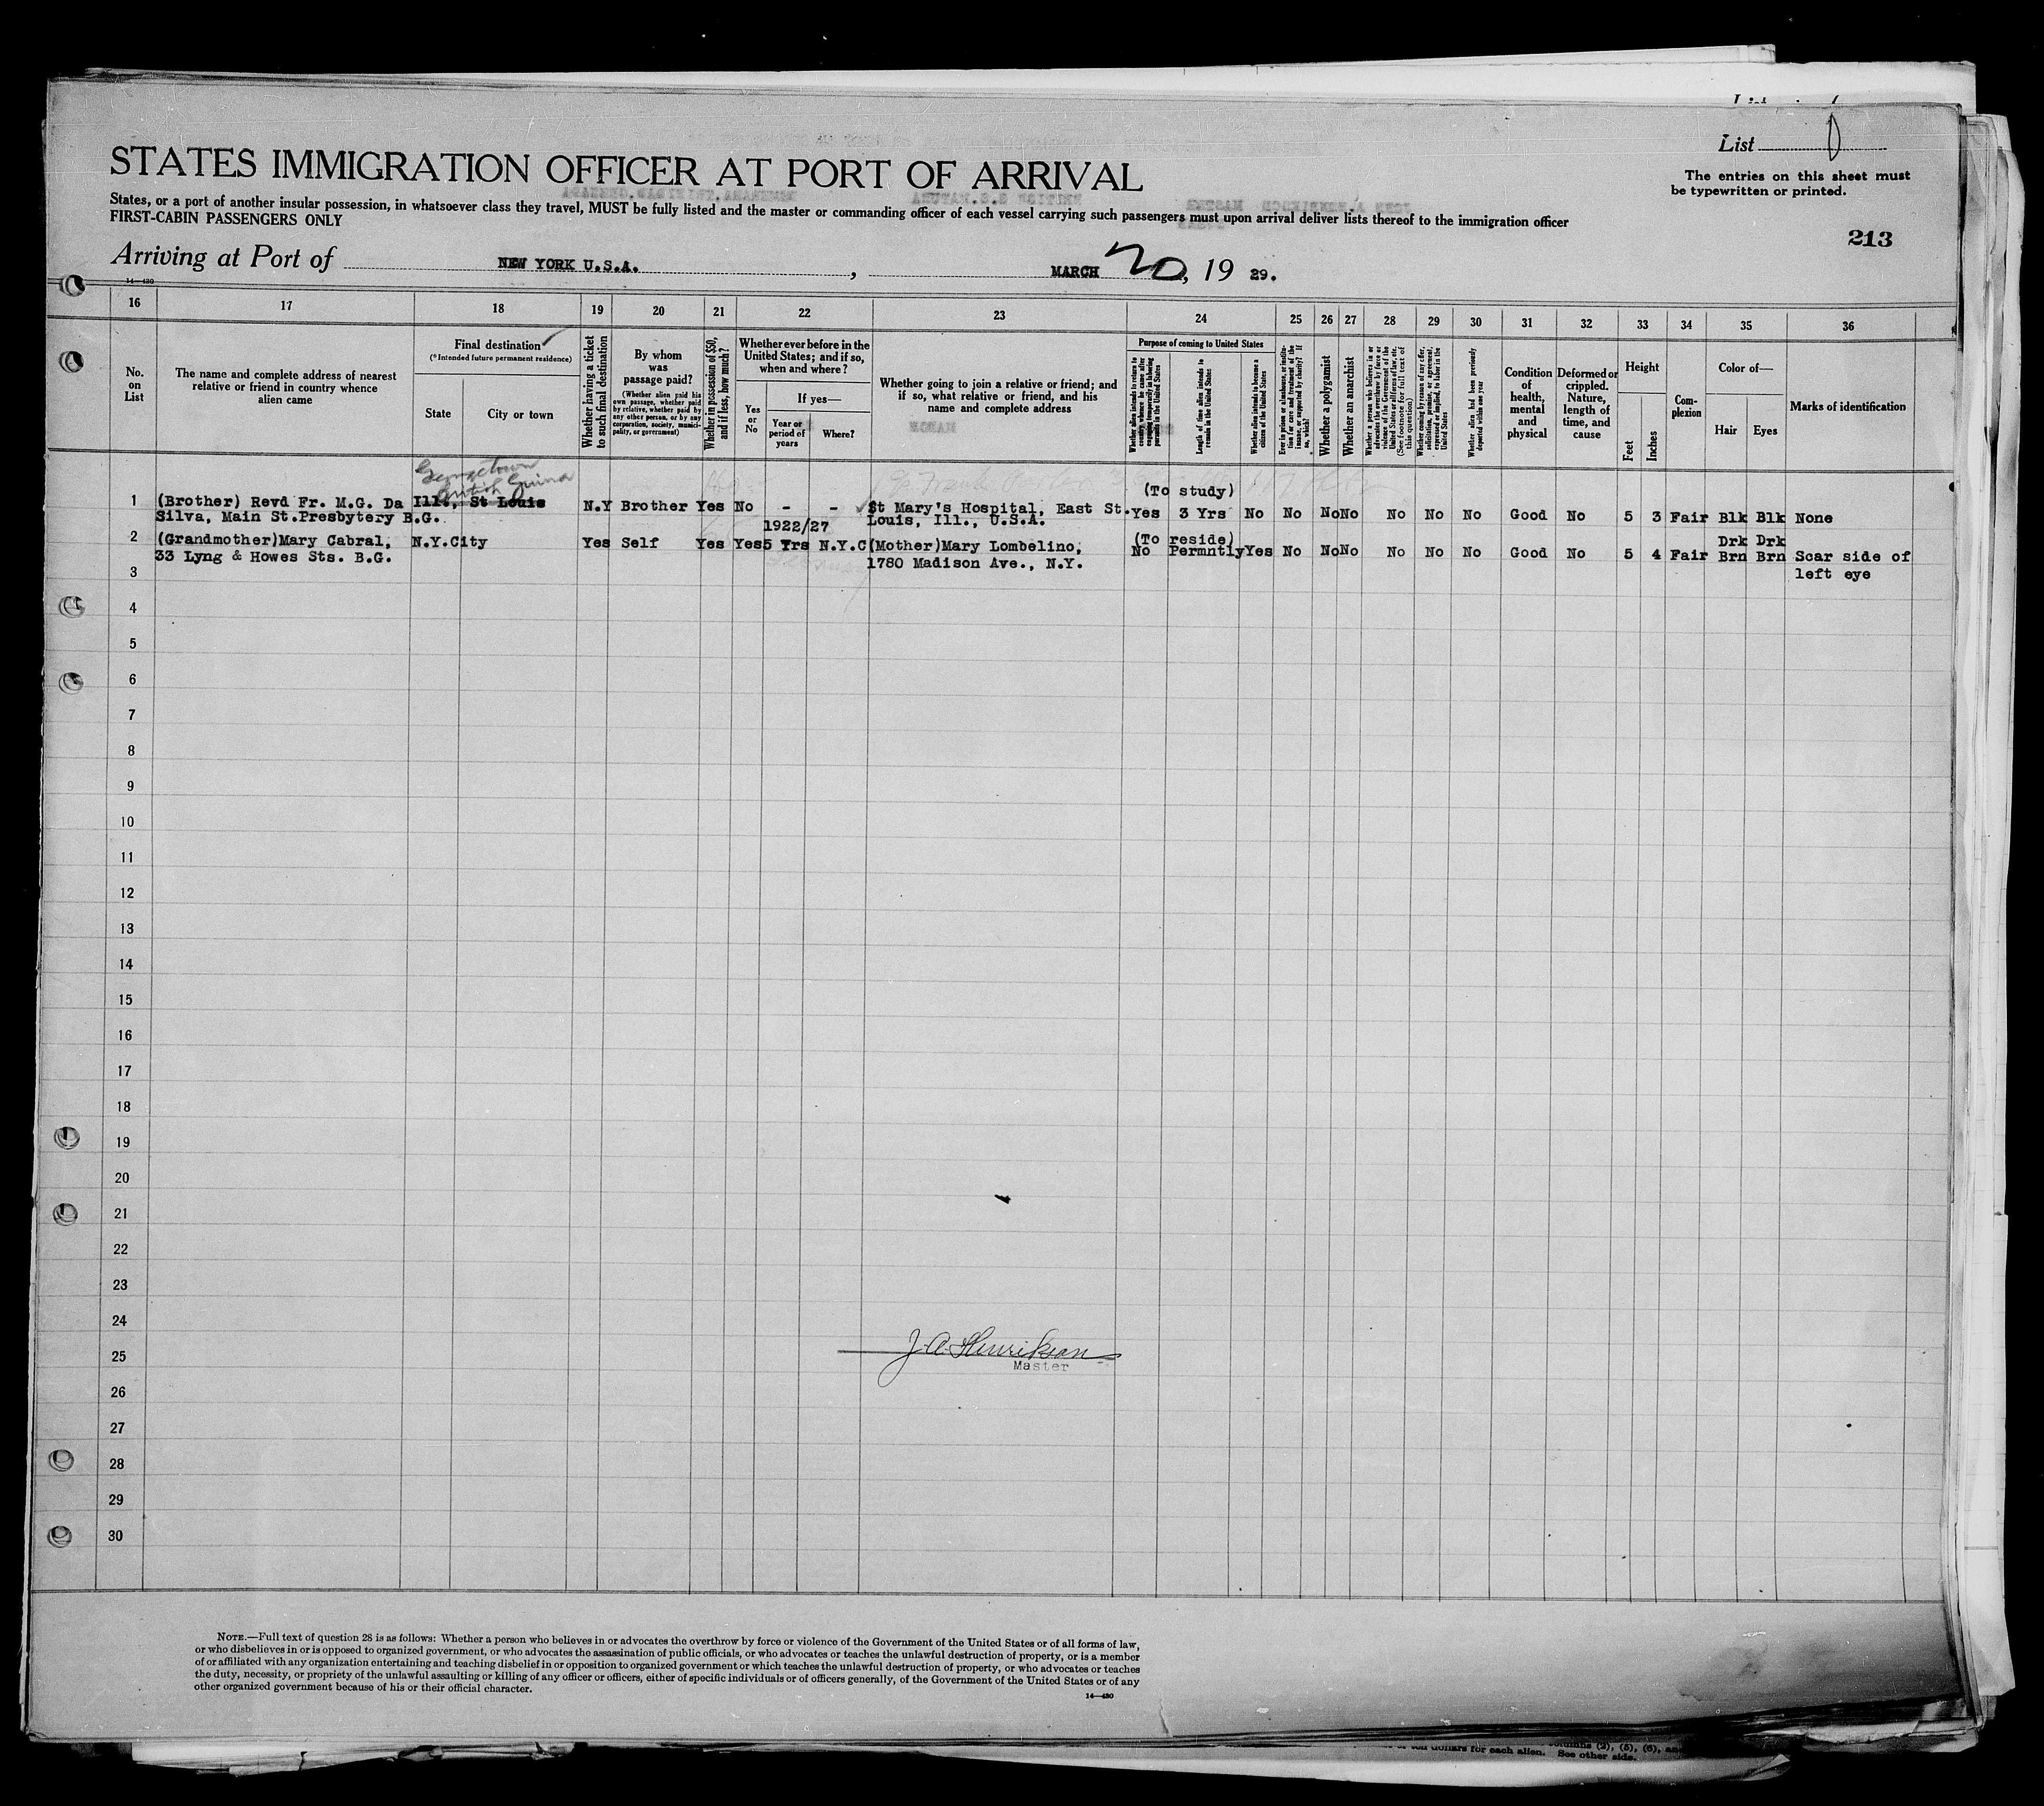 List
The entries on this sheet must
be typewritten or printed.
STATES IMMIGRATION OFFICER AT PORT OF ARRIVAL
States, or a port of another insular possession, in whatsoever class they travel, MUST be fully listed and the master or commanding officer of each vessel carrying such passengers must upon arrival deliver lists thereof to the immigration officer
FIRST-CABIN PASSENGERS ONLY
213
Arriving at Port of NEW YORK U.S.A. , MARCH 20, 19 29.
14—430
16 17 18 19 20 21 22 23 24 25 26 27 28 29 30 31 32 33 34 35 36
No. on List
The name and complete address of nearest
relative or friend in country whence
alien came
Final destination
(*Intended future permanent residence)
State
City or town
Whether having a ticket
to such final destination
By whom
was
passage paid?
(Whether alien paid his
own passage, whether paid
by relative, whether paid by
any other person, or by any
corporation, society, munici-
pality, or government)
Whether in possession of $50,
and if less, how much?
Whether ever before in the
United States; and if so,
when and where?
Yes or No
If yes—
Year or
period of
years
Where?
Whether going to join a relative or friend; and
if so, what relative or friend, and his
name and complete address
Purpose of coming to United States
Whether alien intends to return to
country whence he came after
engaging temporarily in laboring
pursuits in the United States
Length of time alien intends to
remain in the United States
Whether alien intends to become a
citizen of the United States
Ever in prison or almshouse, or institu-
tion for care and treatment of the
insane, or supported by charity? If
so, which?
Whether a polygamist
Whether an anarchist
Whether a person who believes in or
advocates the overthrow by force or
violence of the Government of the
United States or all forms of law, etc.
(See footnote for full text of
this question)
Whether coming by reason of any offer,
solicitation, promise, or agreement,
expressed or implied, to labor in the
United States
Whether alien had been previously
deported within one year
Condition
of
health,
mental
and
physical
Deformed or
crippled.
Nature,
length of
time, and
cause
Height
Feet
Inches
Com-
plexion
Color of—
Hair
Eyes
Marks of identification
Georgetown
British Guiana
(To study)
1 (Brother) Revd Fr. M.G. Da Ill., St Louis N.Y Brother Yes No - - St Mary's Hospital, East St. Yes 3 Yrs No No No No No No No Good No 5 3 Fair Blk Blk None
Silva, Main St.Presbytery B.G. Louis, Ill., U.S.A.
1922/27 (To reside) Drk Drk
2 (Grandmother)Mary Cabral, N.Y.City Yes Self Yes Yes 5 Yrs N.Y.C (Mother)Mary Lombelino, No Permntly Yes No No No No No No Good No 5 4 Fair Brn Brn Scar side of
33 Lyng & Howes Sts. B.G. 1780 Madison Ave., N.Y. left eye
3
4
5
6
7
8
9
10
11
12
13
14
15
16
17
18
19
20
21
22
23
24
25
J.A. Henrikson
Master
26
27
28
29
30
NOTE.—Full text of question 28 is as follows: Whether a person who believes in or advocates the overthrow by force or violence of the Government of the United States or of all forms of law,
or who disbelieves in or is opposed to organized government, or who advocates the assassination of public officials, or who advocates or teaches the unlawful destruction of property, or is a member
of or affiliated with any organization entertaining and teaching disbelief in or opposition to organized government or which teaches the unlawful destruction of property, or who advocates or teaches
the duty, necessity, or propriety of the unlawful assaulting or killing of any officer or officers, either of specific individuals or of officers generally, of the Government of the United States or of any
other organized government because of his or their official character.
14—430
dollars for each alien. See other side.